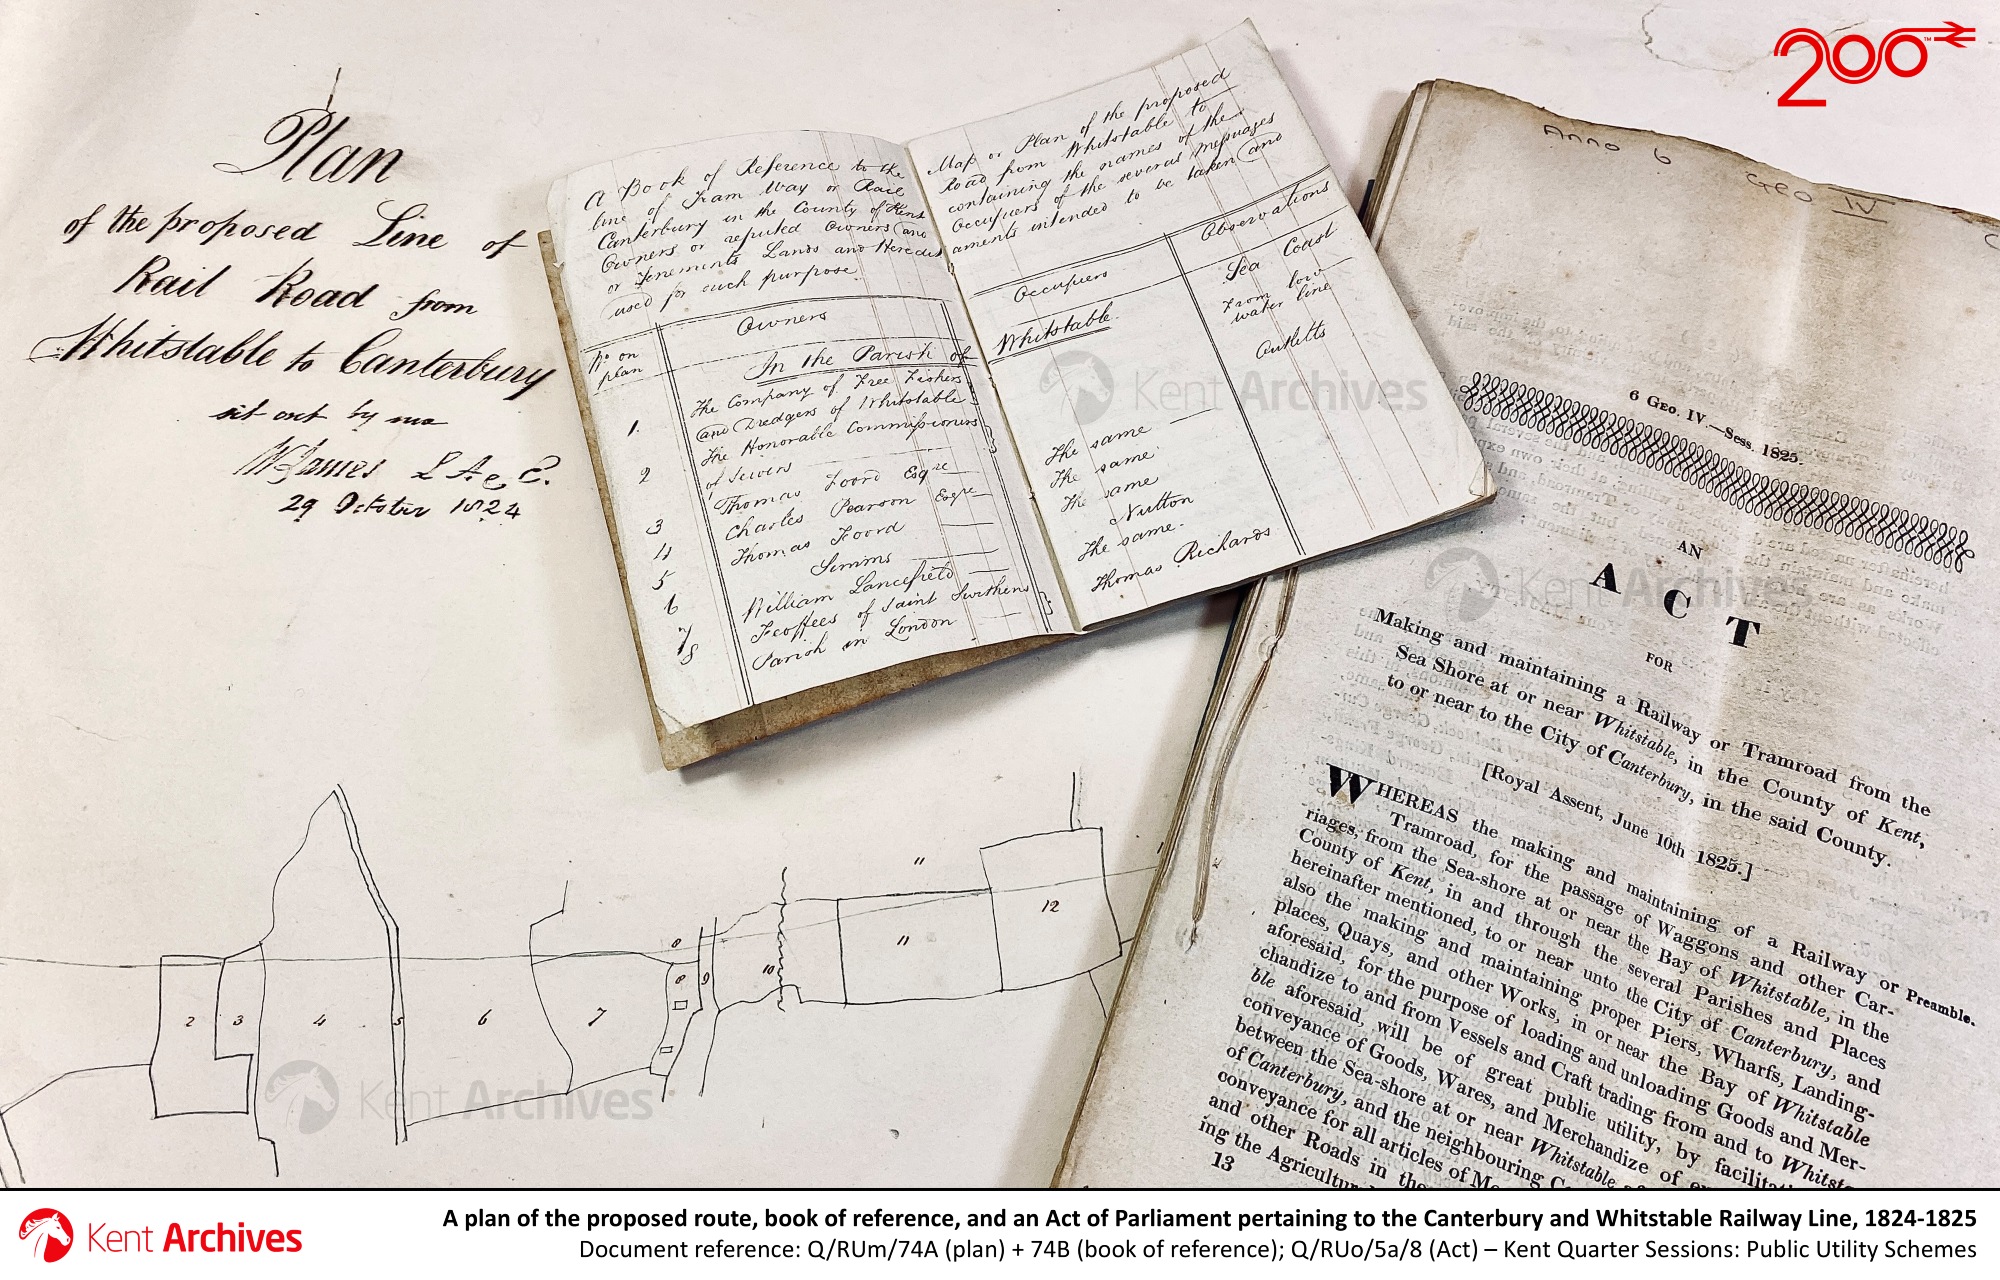 200
Plan
of the proposed Line of
Rail Road from
Whitstable to Canterbury
set out by me
W James L A & C.
29 October 1824
A Book of Reference to the
line of Tram Way or Rail
Canterbury in the County of Kent
Owners or reputed Owners and
or Tenements Lands and Heredit
used for such purpose
No on
plan
Owners
In the Parish of
1. The Company of Free Fishers
and Dredgers of Whitstable
2 The Honorable Commissioners
of Sewers
3 Thomas Foord Esqre
4 Charles Pearson Esqre
5 Thomas Foord
6 Simms
7 William Lancefield
8 Feoffees of Saint Swithens
Parish in London
Map or Plan of the proposed
Road from Whitstable to
containing the names of the
Occupiers of the several Messuages
aments intended to be taken and
Occupiers
Observations
Whitstable.
Sea Coast
From low
water line
Outletts
The same
The same
The same
Nutton
The same.
Thomas Richards
Kent Archives
Anno 6
Geo IV
6 GEO. IV.—Sess. 1825.
AN
ACT
FOR
Making and maintaining a Railway or Tramroad from the
Sea Shore at or near Whitstable, in the County of Kent,
to or near to the City of Canterbury, in the said County.
[Royal Assent, June 10th 1825.]
WHEREAS the making and maintaining of a Railway or
Tramroad, for the passage of Waggons and other Car-
riages, from the Sea-shore at or near the Bay of Whitstable, in the
County of Kent, in and through the several Parishes and Places
hereinafter mentioned, to or near unto the City of Canterbury, and
also the making and maintaining proper Piers, Wharfs, Landing-
places, Quays, and other Works, in or near the Bay of Whitstable
aforesaid, for the purpose of loading and unloading Goods and Mer-
chandize to and from Vessels and Craft trading from and to Whitsta-
ble aforesaid, will be of great public utility, by facilitating
conveyance of Goods, Wares, and Merchandize of
between the Sea-shore at or near Whitstable
of Canterbury, and the neighbouring
conveyance for all articles of
and other Roads in the
ing the
13
Preamble.
Kent Archives
2 3 4 5 6 7 8 8 9 10 11 11 12
Kent Archives
Kent Archives
A plan of the proposed route, book of reference, and an Act of Parliament pertaining to the Canterbury and Whitstable Railway Line, 1824-1825
Document reference: Q/RUm/74A (plan) + 74B (book of reference); Q/RUo/5a/8 (Act) – Kent Quarter Sessions: Public Utility Schemes